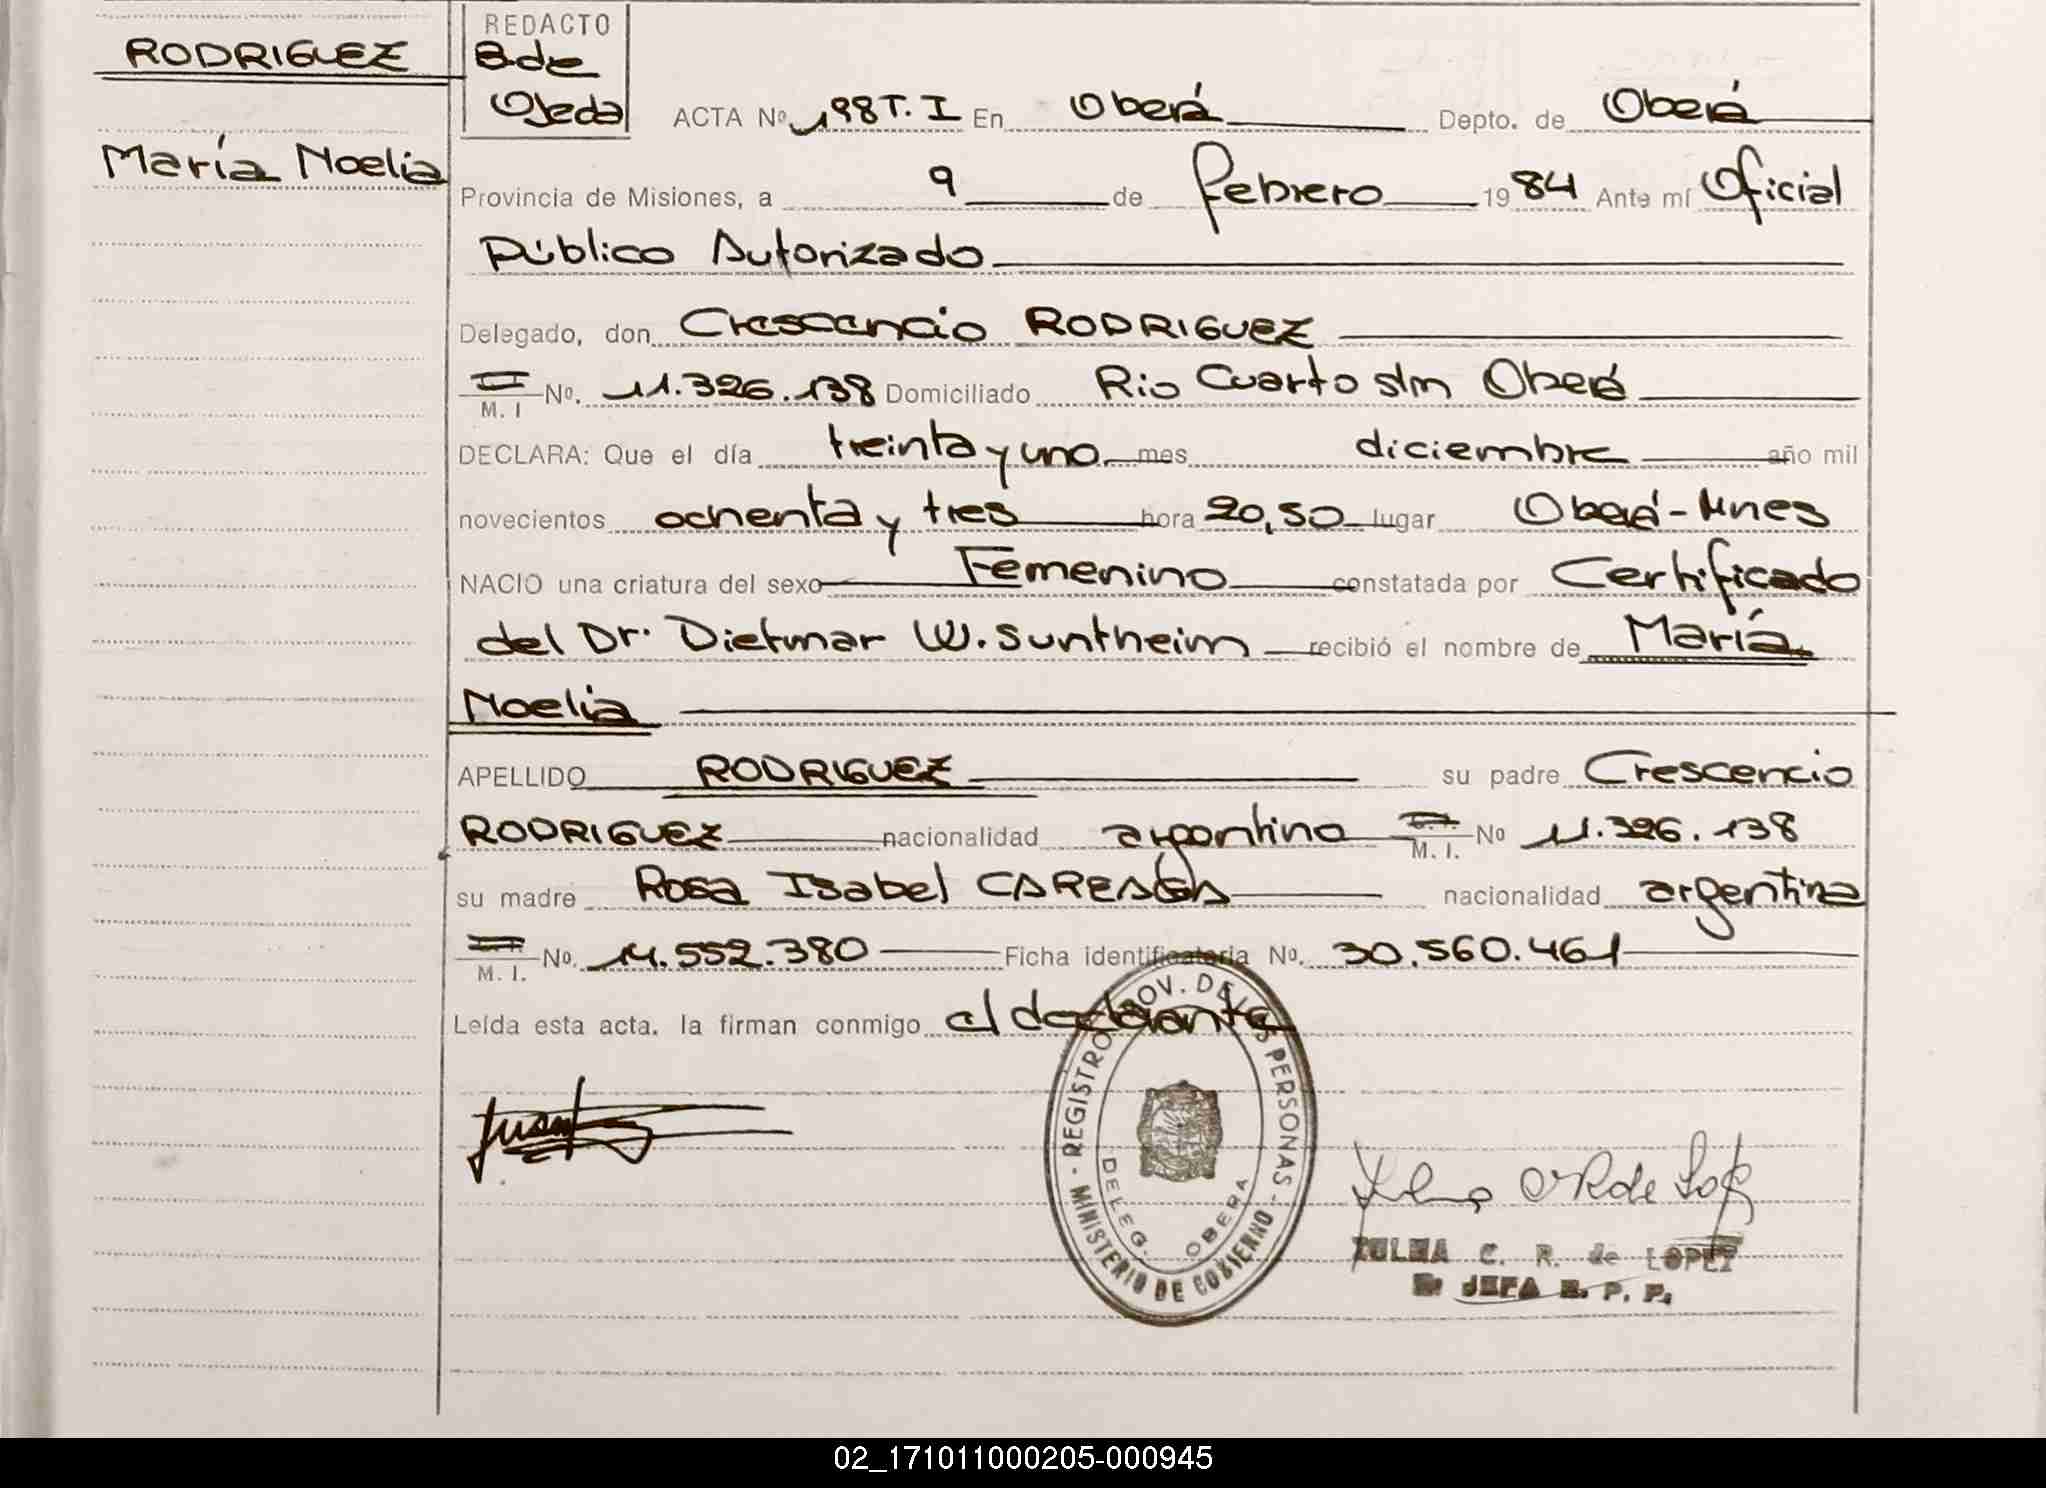 RODRIGUEZ
María Noelia
REDACTO
B.de
Ojeda
ACTA Nº 198 T. I En Oberá Depto. de Oberá
Provincia de Misiones, a 9 de febrero 1984 Ante mí Oficial
Público Autorizado
Delegado, don Crescencio RODRIGUEZ
M. I Nº. 11.326.138 Domiciliado Rio Cuarto s/n Oberá
DECLARA: Que el día treinta y uno mes diciembre año mil
novecientos ochenta y tres hora 20,50 lugar Oberá-Mnes
NACIO una criatura del sexo Femenino constatada por Certificado
del Dr. Dietmar W. Suntheim recibió el nombre de María
Noelia
APELLIDO RODRIGUEZ su padre Crescencio
RODRIGUEZ nacionalidad argentino M. I. Nº 11.326.138
su madre Rosa Isabel nacionalidad argentina
M. I. Nº. 14.552.380 Ficha identificatoria Nº. 30.560.461
Leída esta acta. la firman conmigo el declarante
REGISTRO PROV. DE LAS PERSONAS - MINISTERIO DE GOBIERNO -
DELEG. OBERA
ZULMA C. R. de LOPEZ
JEFA R. P. P.
02_171011000205-000945